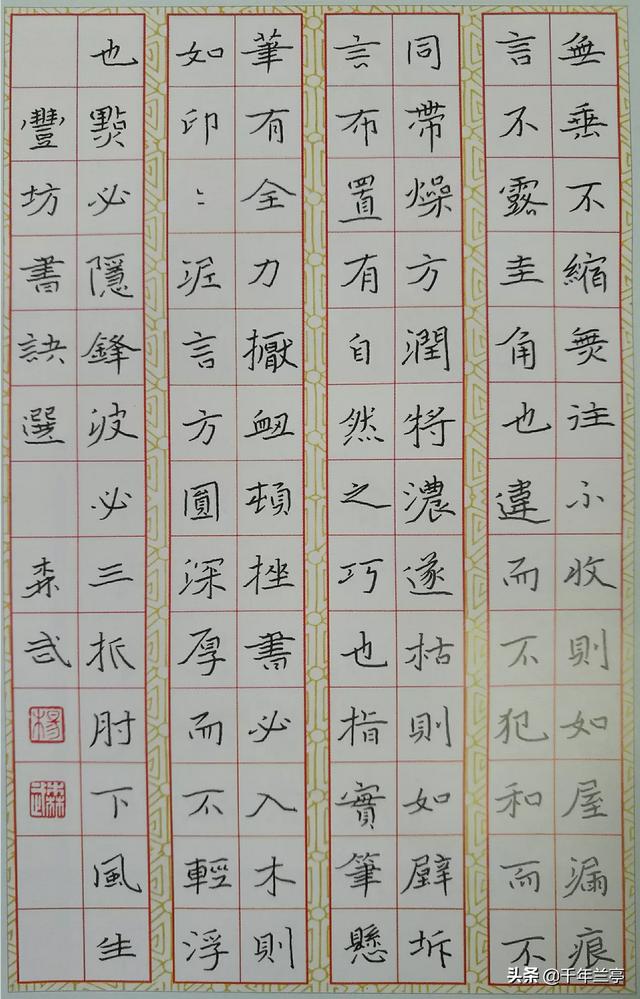 無垂不縮無往不收則如屋漏痕
言不露圭角也違而不犯和而不
同帶燥方潤將濃遂枯則如壁坼
言布置有自然之巧也指實筆懸
筆有全力擫衄頓挫書必入木則
如印〻泥言方圓深厚而不輕浮
也點必隱鋒波必三折肘下風生
豐坊書訣選 森
楊
头条 @千年兰亭